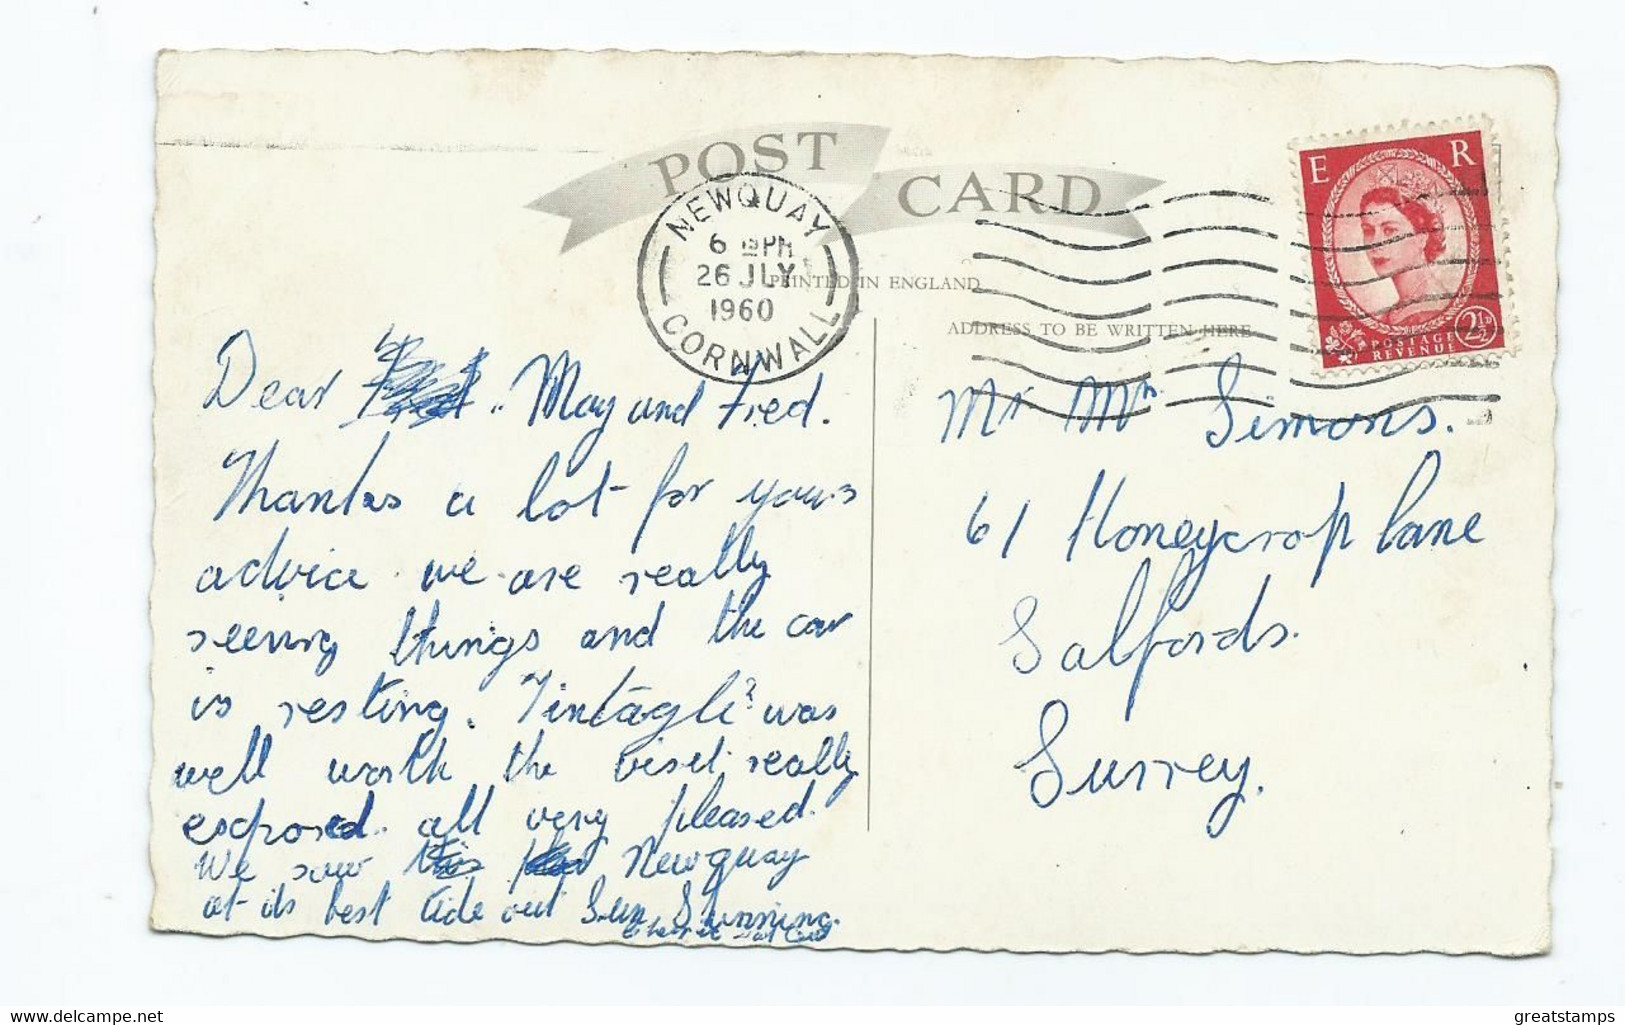 POST CARD
NEWQUAY
6 15 PM
26 JLY
1960
CORNWALL
PRINTED IN ENGLAND
ADDRESS TO BE WRITTEN HERE
E R
POSTAGE
REVENUE
2½D
Dear May and Fred.
Thanks a lot for yours
advice we are really
seeing things and the car
is resting. Tintagle? was
well worth the visit really
exposed. all very pleased.
We saw Newquay
at its best tide out Sun Shinning.
Mr Mrs Simons.
61 Honeycrop Lane
Salfords.
Surrey.
delcampe.net
greatstamps